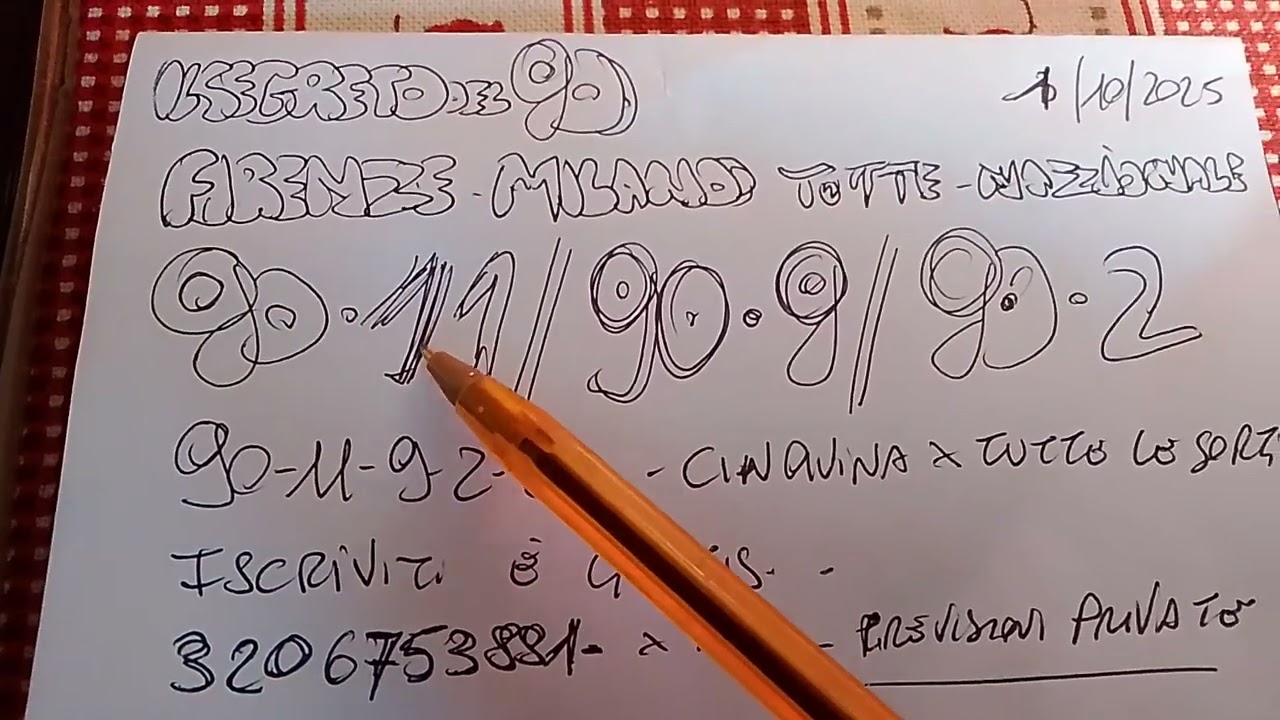 IL SEGRETO DEL 90
1/10/2025
FIRENZE - MILANO TUTTE - NAZZIONALE
90·11//90·9//90·2
90-11-9-2- - CINQUINA X TUTTE LE SORTI
ISCRIVITI È
3206753881- X - PREVISIONI PRIVATE